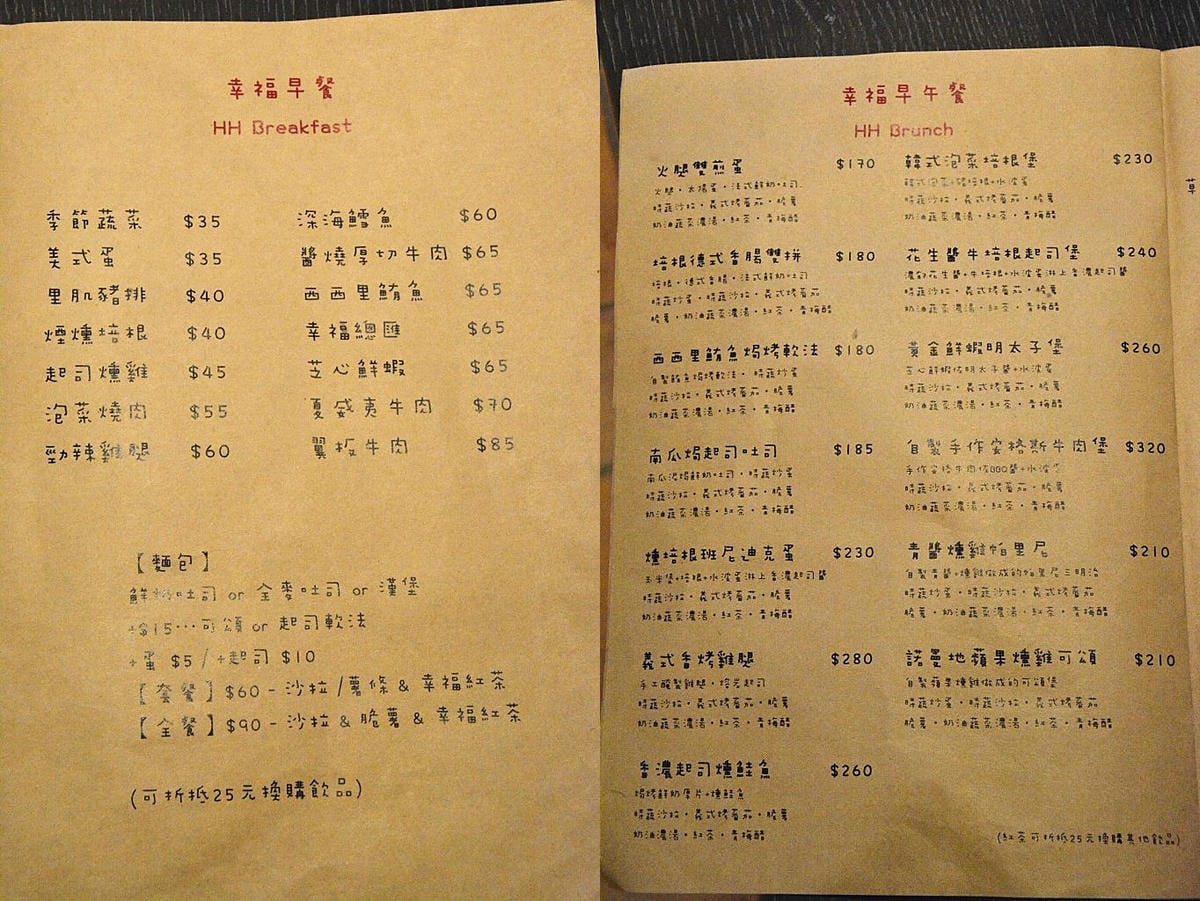 幸福早餐
HH Breakfast
季節蔬菜 $35
美式蛋 $35
里肌豬排 $40
煙燻培根 $40
起司燻雞 $45
泡菜燒肉 $55
勁辣雞腿 $60
深海鱈魚 $60
醬燒厚切牛肉 $65
西西里鮪魚 $65
幸福總匯 $65
芝心鮮蝦 $65
夏威夷牛肉 $70
翼板牛肉 $85
【麵包】
鮮奶吐司 or 全麥吐司 or 漢堡
+$15…可頌 or 起司軟法
+蛋 $5 / +起司 $10
【套餐】$60-沙拉/薯條 & 幸福紅茶
【全餐】$90-沙拉 & 脆薯 & 幸福紅茶
(可折抵25元換購飲品)
幸福早午餐
HH Brunch
火腿雙煎蛋 $170
火腿・太陽蛋・法式鮮奶吐司
時蔬沙拉・義式烤番茄・脆薯
奶油蔬菜濃湯・紅茶・青梅醋
培根德式香腸雙拼 $180
培根・德式香腸・法式鮮奶吐司
時蔬炒蛋・時蔬沙拉・義式烤番茄
脆薯・奶油蔬菜濃湯・紅茶・青梅醋
西西里鮪魚焗烤軟法 $180
自製鮪魚焗烤軟法・時蔬炒蛋
時蔬沙拉・義式烤番茄・脆薯
奶油蔬菜濃湯・紅茶・青梅醋
南瓜焗起司吐司 $185
南瓜泥焗鮮奶吐司・時蔬炒蛋
時蔬沙拉・義式烤番茄・脆薯
奶油蔬菜濃湯・紅茶・青梅醋
燻培根班尼迪克蛋 $230
玉米堡+培根+水波蛋淋上香濃起司醬
時蔬沙拉・義式烤番茄・脆薯
奶油蔬菜濃湯・紅茶・青梅醋
義式香烤雞腿 $280
手工醃製雞腿・
時蔬沙拉・義式烤番茄・脆薯
奶油蔬菜濃湯・紅茶・青梅醋
香濃起司燻鮭魚 $260
焗烤鮮奶厚片+燻鮭魚
時蔬沙拉・義式烤番茄・脆薯
奶油濃湯・紅茶・青梅醋
韓式泡菜培根堡 $230
韓式泡菜+豬培根+水波蛋
時蔬沙拉・義式烤番茄・脆薯
奶油蔬菜濃湯・紅茶・青梅醋
花生醬牛培根起司堡 $240
濃郁花生醬+牛培根+水波蛋淋上香濃起司醬
時蔬沙拉・義式烤番茄・脆薯
奶油蔬菜濃湯・紅茶・青梅醋
黃金鮮蝦明太子堡 $260
芝心鮮蝦佐明太子醬+水波蛋
時蔬沙拉・義式烤番茄・脆薯
奶油蔬菜濃湯・紅茶・青梅醋
自製手作安格斯牛肉堡 $320
手作安格牛肉佐BBQ醬+水波蛋
時蔬沙拉・義式烤番茄・脆薯
奶油蔬菜濃湯・紅茶・青梅醋
青醬燻雞帕里尼 $210
自製青醬+燻雞做成的帕里尼三明治
時蔬炒蛋・時蔬沙拉・義式烤番茄
脆薯・奶油蔬菜濃湯・紅茶・青梅醋
諾曼地蘋果燻雞可頌 $210
自製蘋果燻雞做成的可頌堡
時蔬炒蛋・時蔬沙拉・義式烤番茄
脆薯・奶油蔬菜濃湯・紅茶・青梅醋
(紅茶可折抵25元換購其他飲品)
草